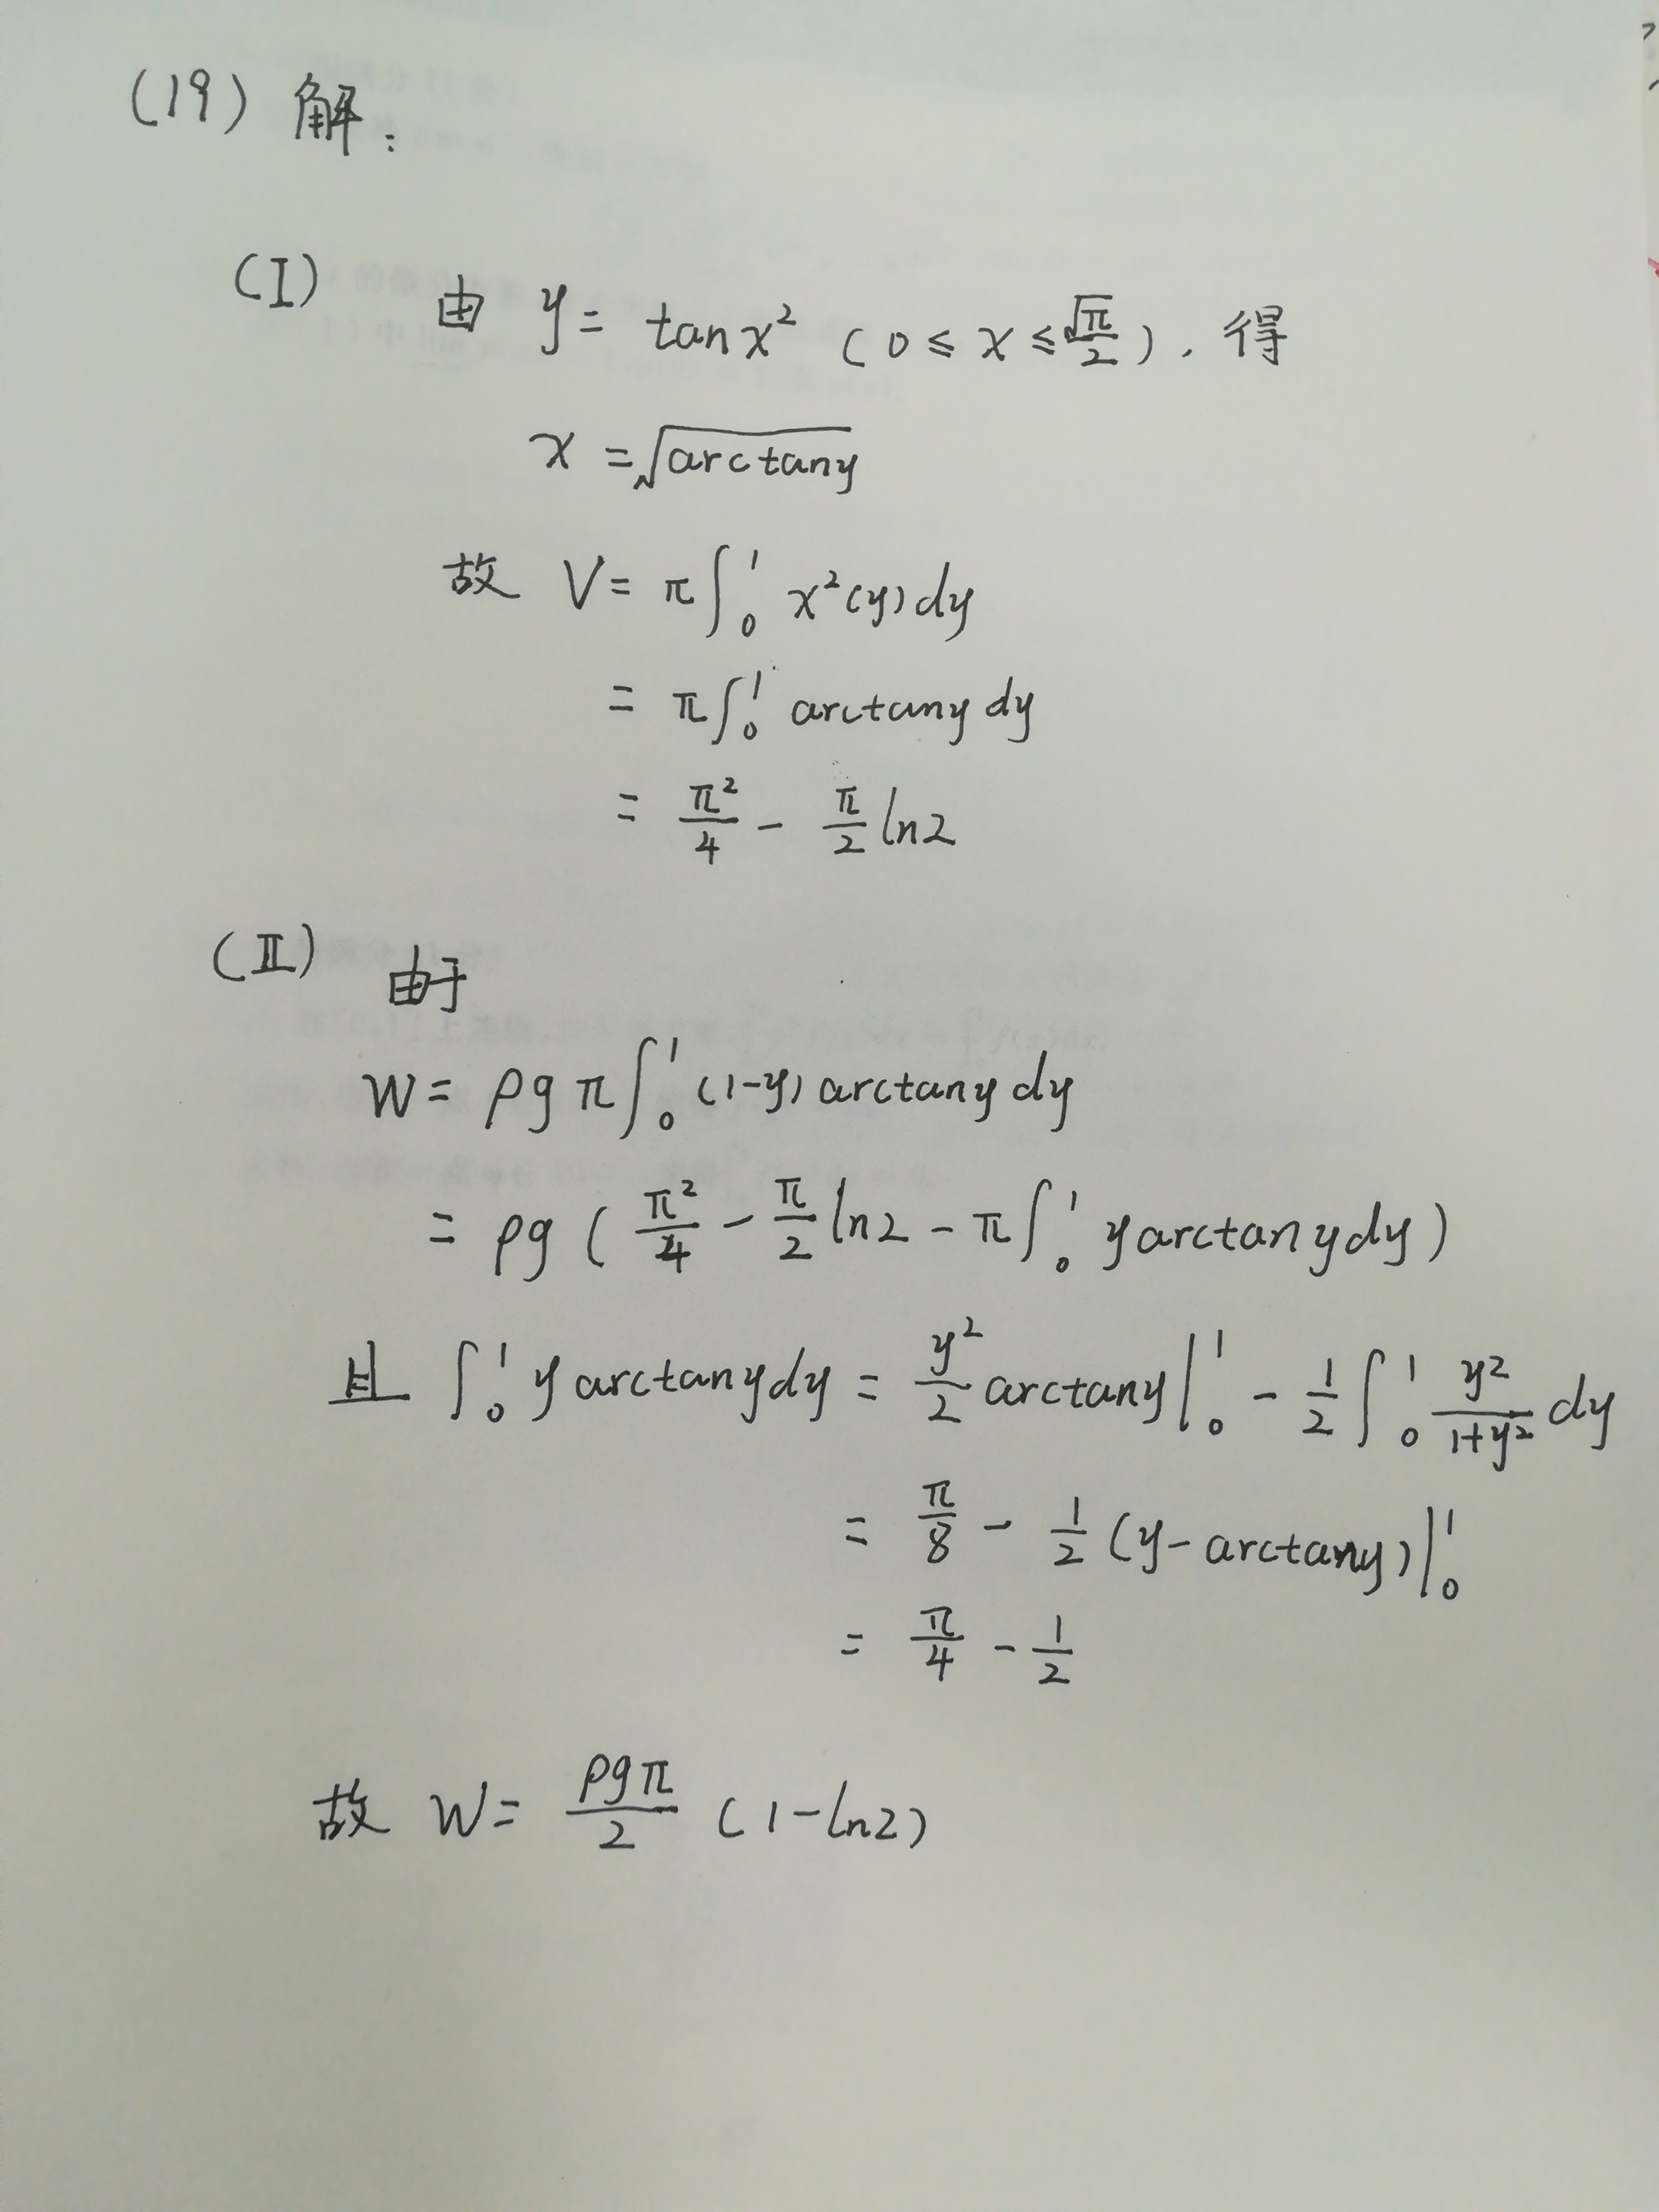 (19) 解:
(I) 由 y = tanx² (0 ≤ x ≤ √π/2), 得
x = √arctany
故 V = π∫₀¹ x²(y)dy
= π∫₀¹ arctany dy
= π²/4 - π/2 ln2
(II) 由于
W = ρgπ∫₀¹ (1-y) arctany dy
= ρg ( π²/4 - π/2 ln2 - π∫₀¹ y arctany dy )
且 ∫₀¹ y arctany dy = y²/2 arctany|₀¹ - 1/2 ∫₀¹ y²/(1+y²) dy
= π/8 - 1/2 (y - arctany)|₀¹
= π/4 - 1/2
故 W = ρgπ/2 (1-ln2)